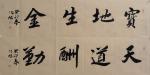 寶地生金
天道酬勤